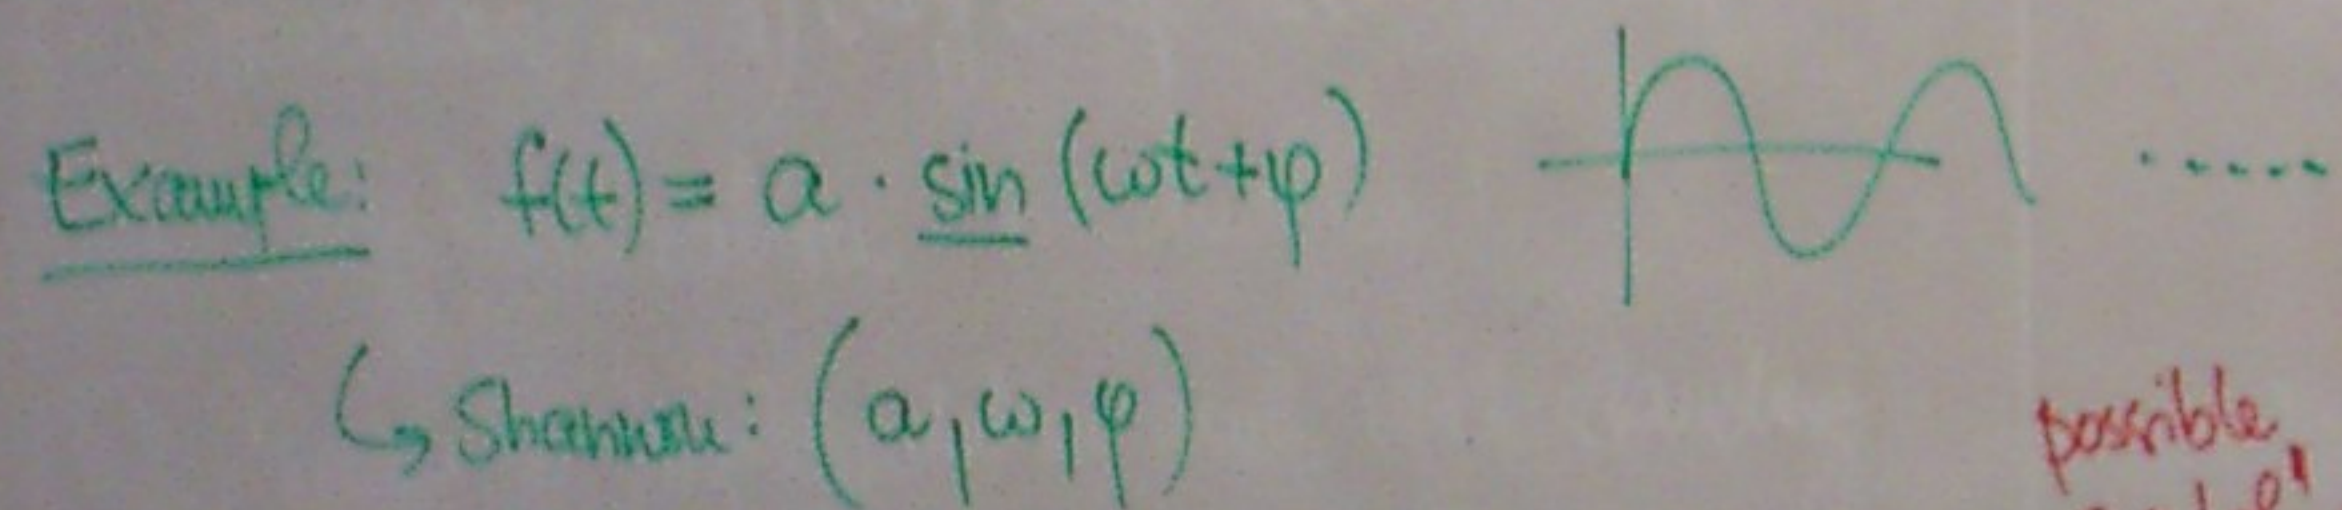 Example: f(t) = a · sin (ωt+φ)
↳ Shannon: (a, ω, φ)
possible